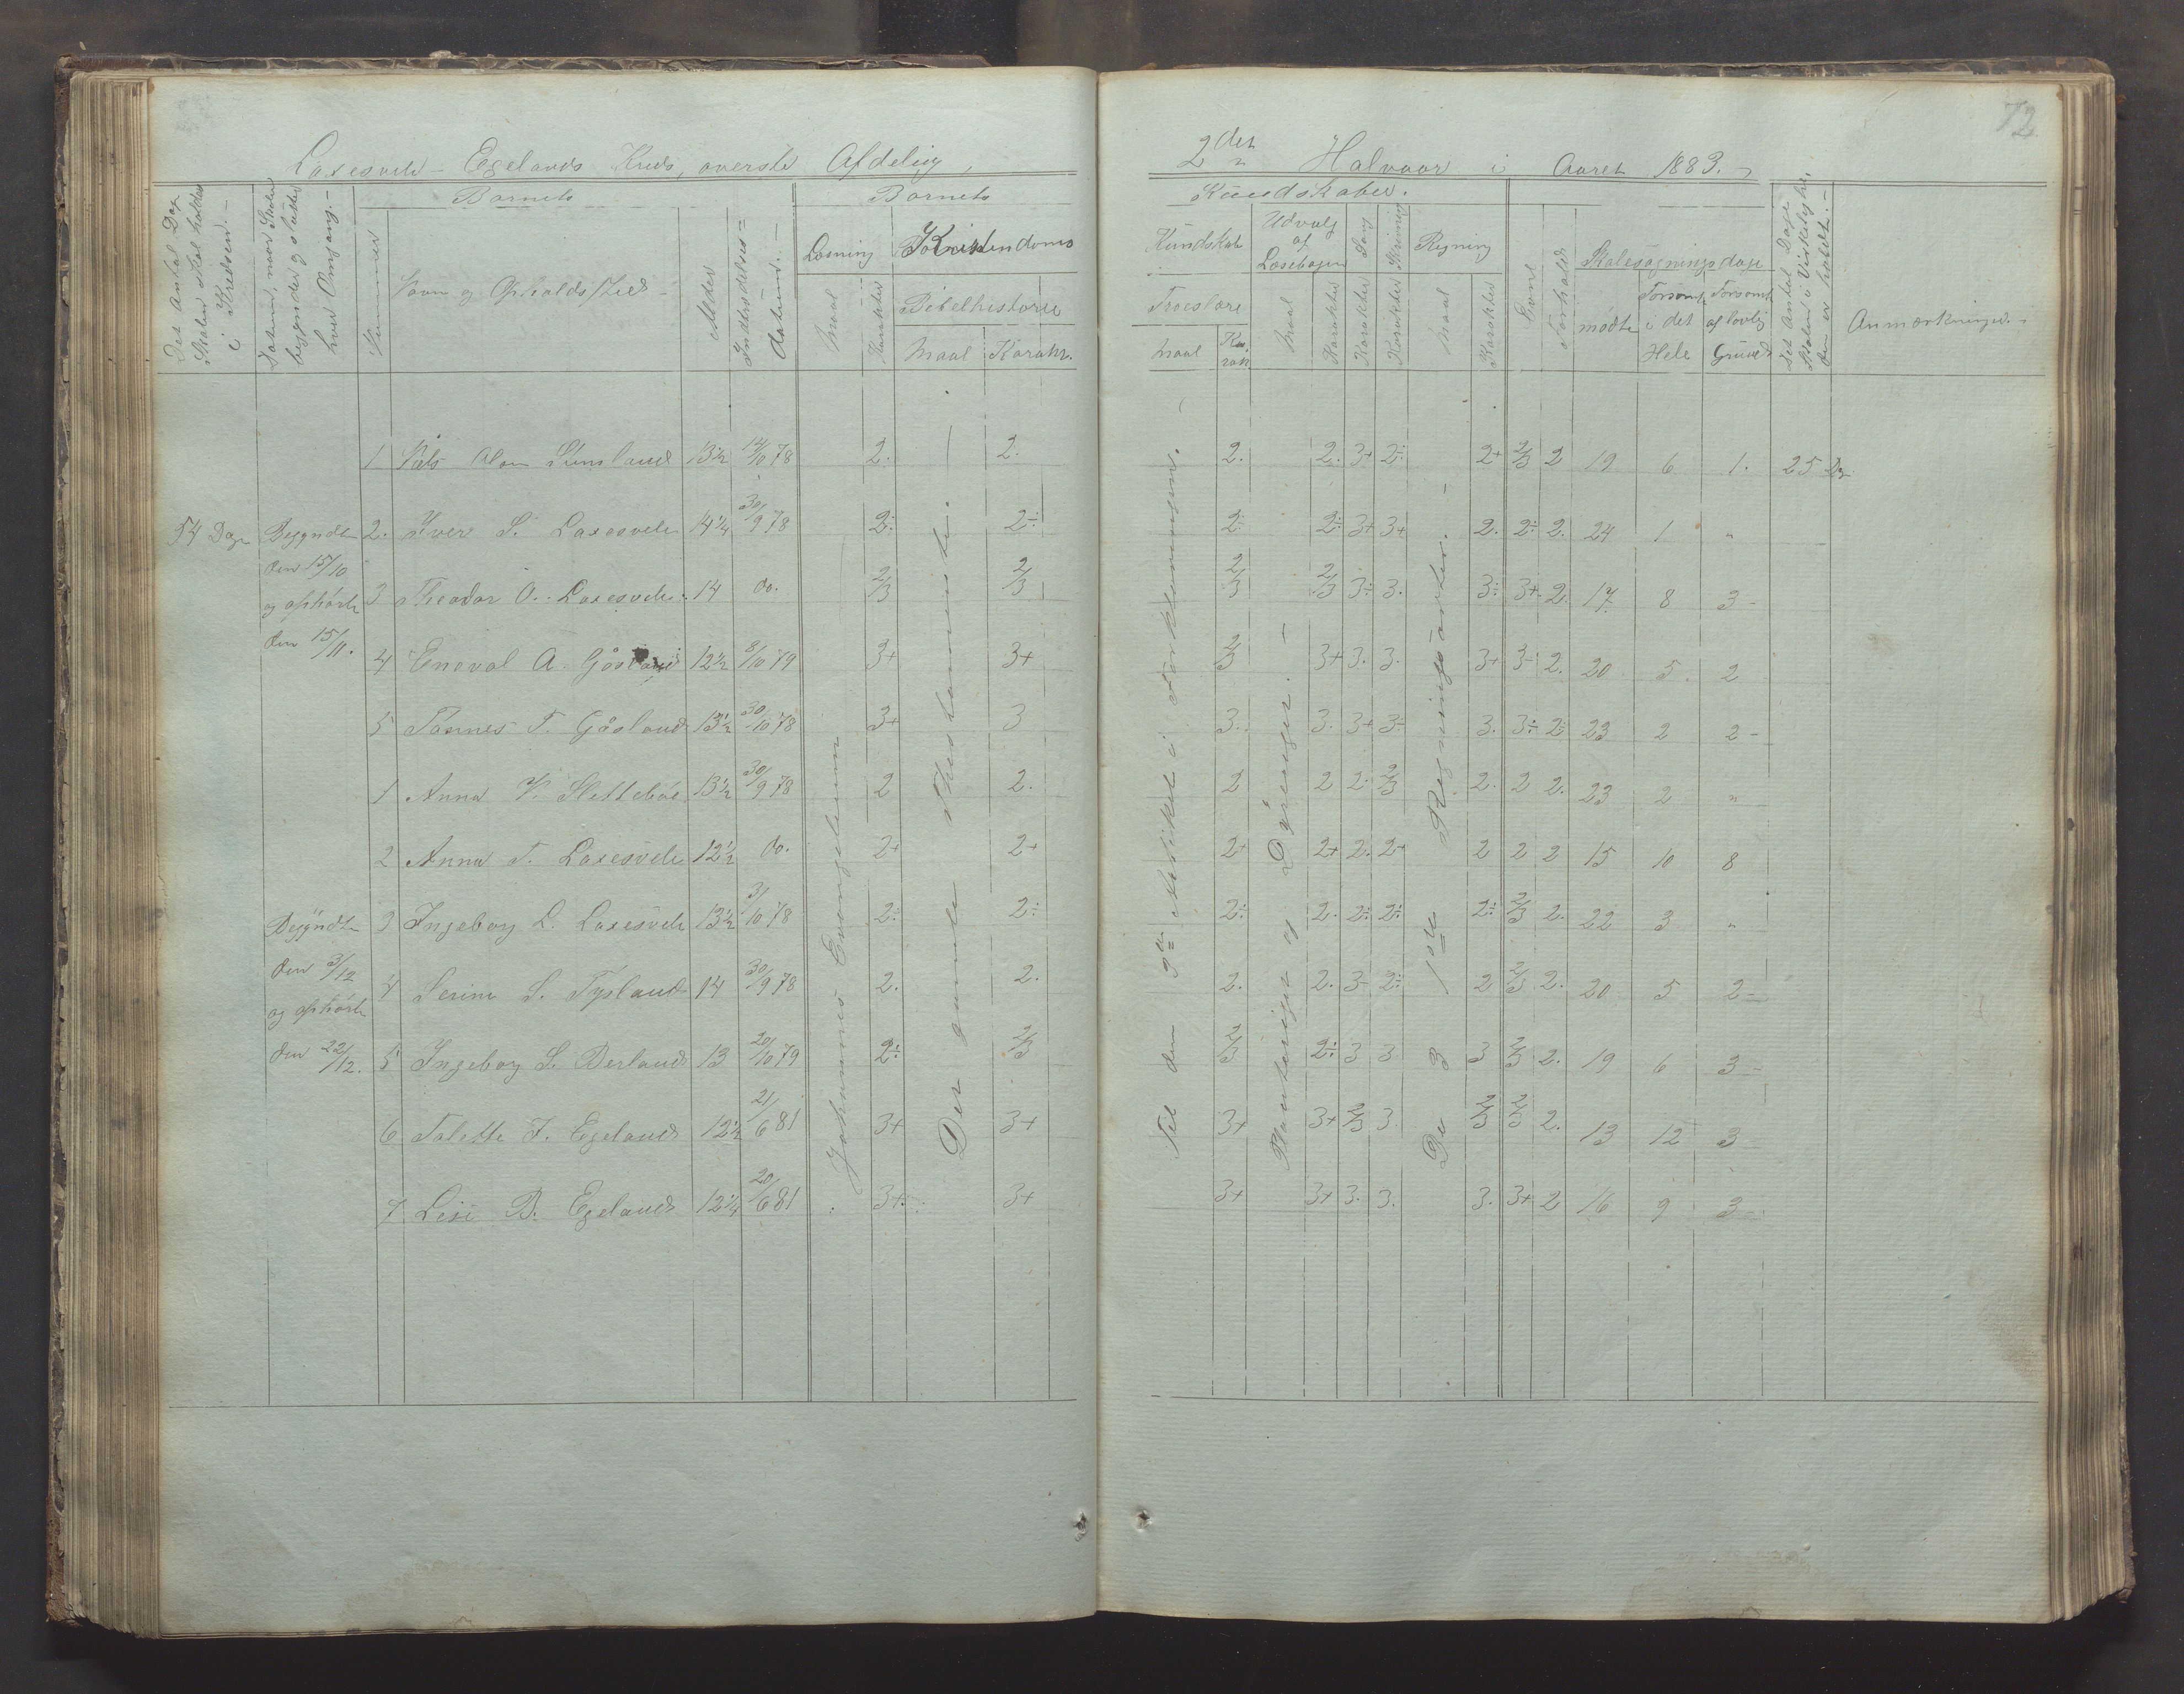 72
Laxesvele - Egelands Kreds, øverste Afdeling,
2det Halvaar i Aaret 1883.
Det Antal Dage Skolen skal holdes i Kredsen.
Datum, naar Skolen begynder og slutter hver Omgang.
Nummer
Barnets
Navn og Opholdssted
Alder
Indtrædelses-datum.
Barnets
Læsning
Maal
Karakter
Kristendoms
Bibelhistorie
Maal
Karakt.
Kundskaber.
Kundskab i
Troeslære
Maal
Karakt
Udvalg af Læsebogen
Maal
Karakter
Sang
Karakter
Skrivning
Karakter
Regning
Maal
Karakter
Evne
Forhold
Skolesøgningsdage
mødte
Forsømt i det Hele
Forsømt af lovlig Grund
Det Antal Dage Skolen i Virkelighe. den er holdt.
Anmærkninger.
1 Aslan Sunsland 13½ 14/10 78 2. 2. 2. 2. 3+ 2÷ 2+ 2/3 2 19 6 1. 25 Dg
54 Dage Begyndte 2. Iver S. Laxesvele 14¼ 30/9 78 2÷ 2÷ 2÷ 2÷ 3+ 3+ 2. 2÷ 2. 24 1 "
den 15/10
og ophørte 3 Theodor O. Laxesvele 14 do. 2/3 2/3 2/3 2/3 3÷ 3. 3÷ 3+ 2. 17 8 3
den 15/11. 4 Enevol A. Gåsland 12½ 8/10 79 3+ 3+ 2/3 3+ 3. 3. 3+ 3÷ 2. 20 5 2
5 Tønnes T. Gåsland 13½ 30/10 78 3+ 3 3. 3. 3+ 3÷ 3. 3÷ 2÷ 23 2 2
1 Anna V. Slettebøe 13½ 30/9 78 2 2. 2 2 2. 2/3 2. 2 2. 23 2 "
2 Anna T. Laxesvele 12½ do. 2+ 2+ 2+ 2+ 2. 2+ 2 2 2 15 10 8
Begyndte 3 Ingeborg L. Laxesvele 13½ 3/10 78 2÷ 2÷ 2÷ 2. 2÷ 2÷ 2÷ 2/3 2. 22 3 "
den 3/12 4 Serine S. Tysland 14 30/9 78 2. 2. 2. 2. 3÷ 2÷ 2 2/3 2. 20 5 2
og ophørte
den 22/12. 5 Ingeborg S. Berland 13 20/10 79 2÷ 2/3 2/3 2÷ 3 3 3 2/3 2. 19 6 3
6 Talette J. Egeland 12½ 21/6 81 3+ 3+ 3+ 3+ 2/3 3. 2/3 2/3 2. 13 12 3
7 Lise B. Egeland 12¼ 20/6 81 3+ 3+ 3+ 3+ 3. 3. 3. 3+ 2 16 9 3
Johannes Evangelium
Det gamle Thestamente.
Til den 3die Artikel i Forklaringen.
Planteriget og Dyreriget.
De 3 1ste Regningsarter.